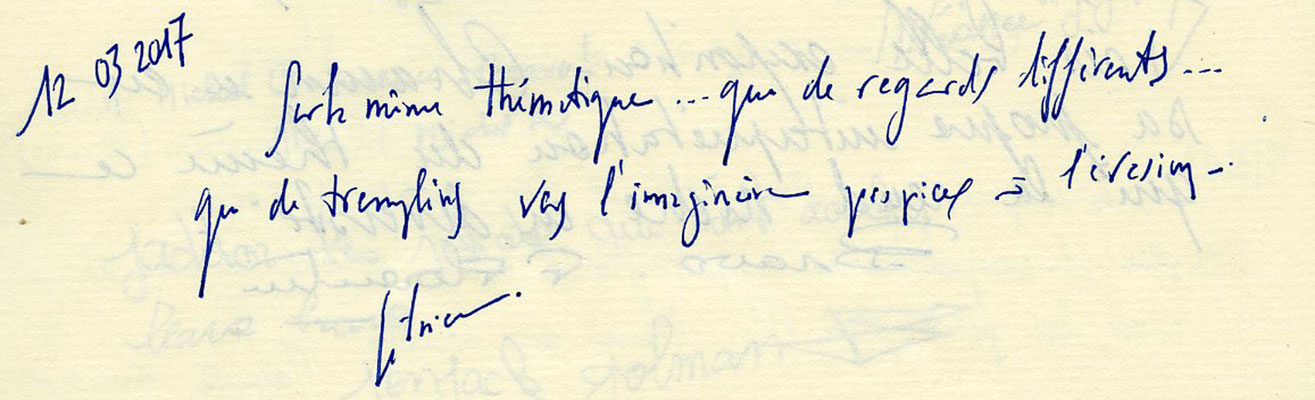 12 03 2017
Sur la même thématique ... que de regards différents ...
que de tremplins vers l'imaginaire propices à l'évasion.